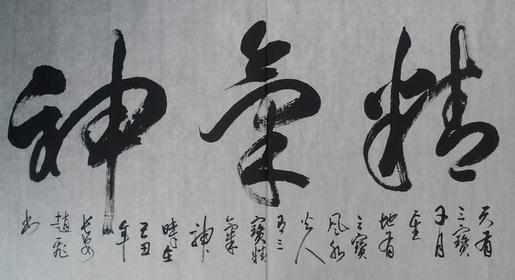 精氣神
天有
三寶
日月
星
地有
三寶
風水
火人
有三
寶精
氣
神
時在
己丑
年
长安
趙飛
书